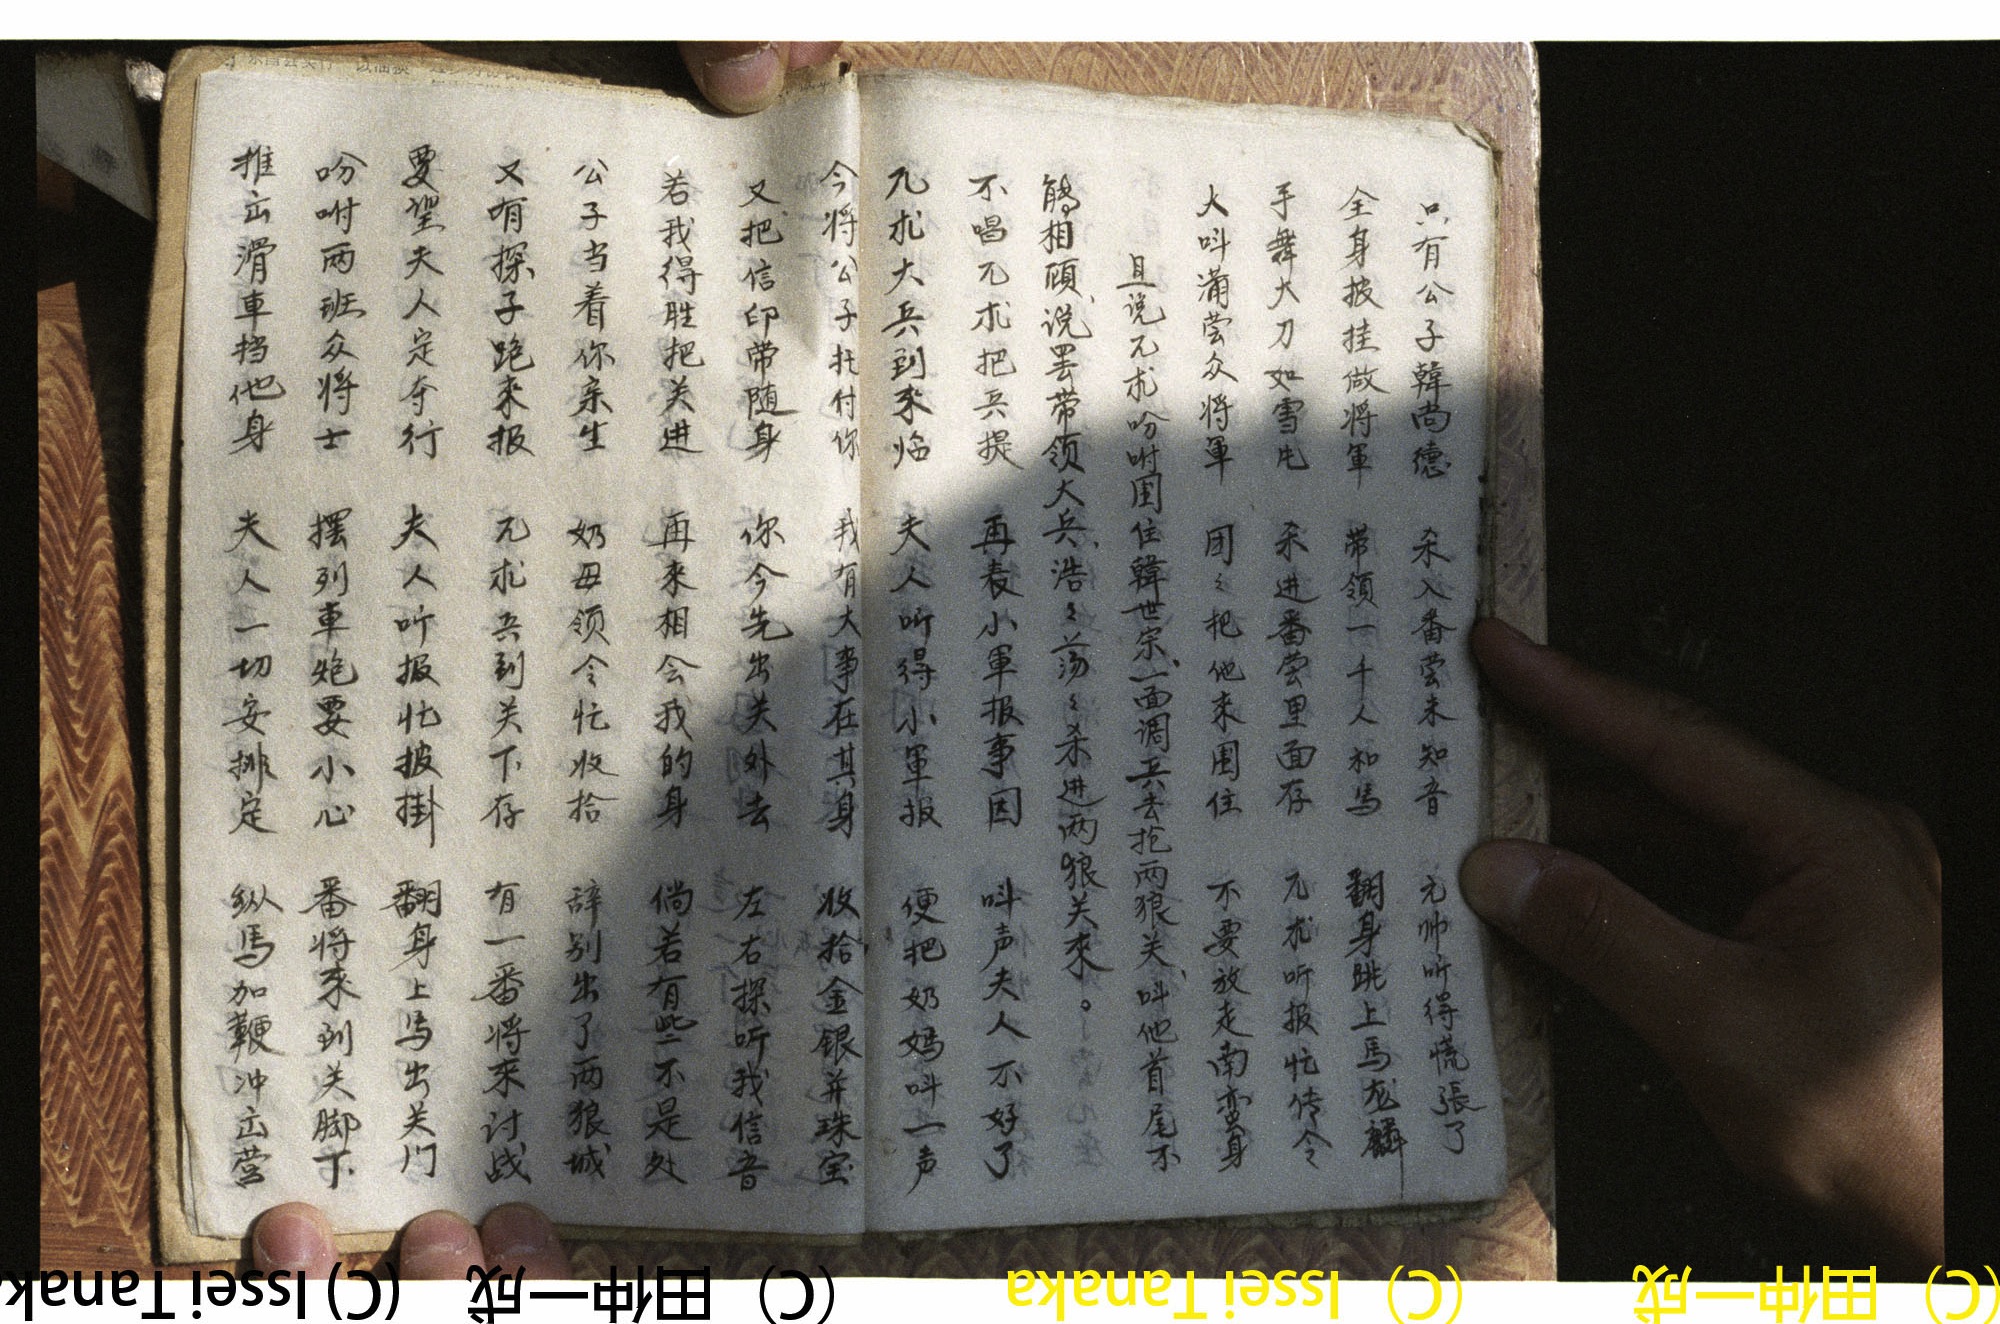 只有公子韓尚德 杀入番营未知音 元帅听得慌張了
全身披挂做将軍 带领一千人和馬 翻身跳上馬龙麟
手舞大刀如雪片 杀进番营里面存 兀朮听报忙传令
大叫满营众将軍 团々把他来围住 不要放走南蛮身
且说兀朮吩咐围住韓世宗、一面调兵去抢两狼关、叫他首尾不
能相顾、说罢带领大兵、浩々荡々、杀进两狼关來。
不唱兀朮把兵提 再表小軍报事因 叫声夫人不好了
兀朮大兵到来临 夫人听得小軍报 便把奶妈叫一声
今将公子托付你 我有大事在其身 收拾金银并珠宝
又把信印带随身 你今先出关外去 左右探听我信音
若我得胜把关进 再来相会我的身 倘若有些不是处
公子当着你亲生 奶母领令忙收拾 辞别出了两狼城
又有探子跑来报 兀朮兵到关下存 有一番将来讨战
要望夫人定夺行 夫人听报忙披掛 翻身上马出关门
吩咐两班众将士 摆列車炮要小心 番将來到关脚下
推出滑車挡他身 夫人一切安排定 纵馬加鞭冲出营
(C) Issei Tanaka (C) 田仲一成 (C) Issei Tanaka (C) 田仲一成